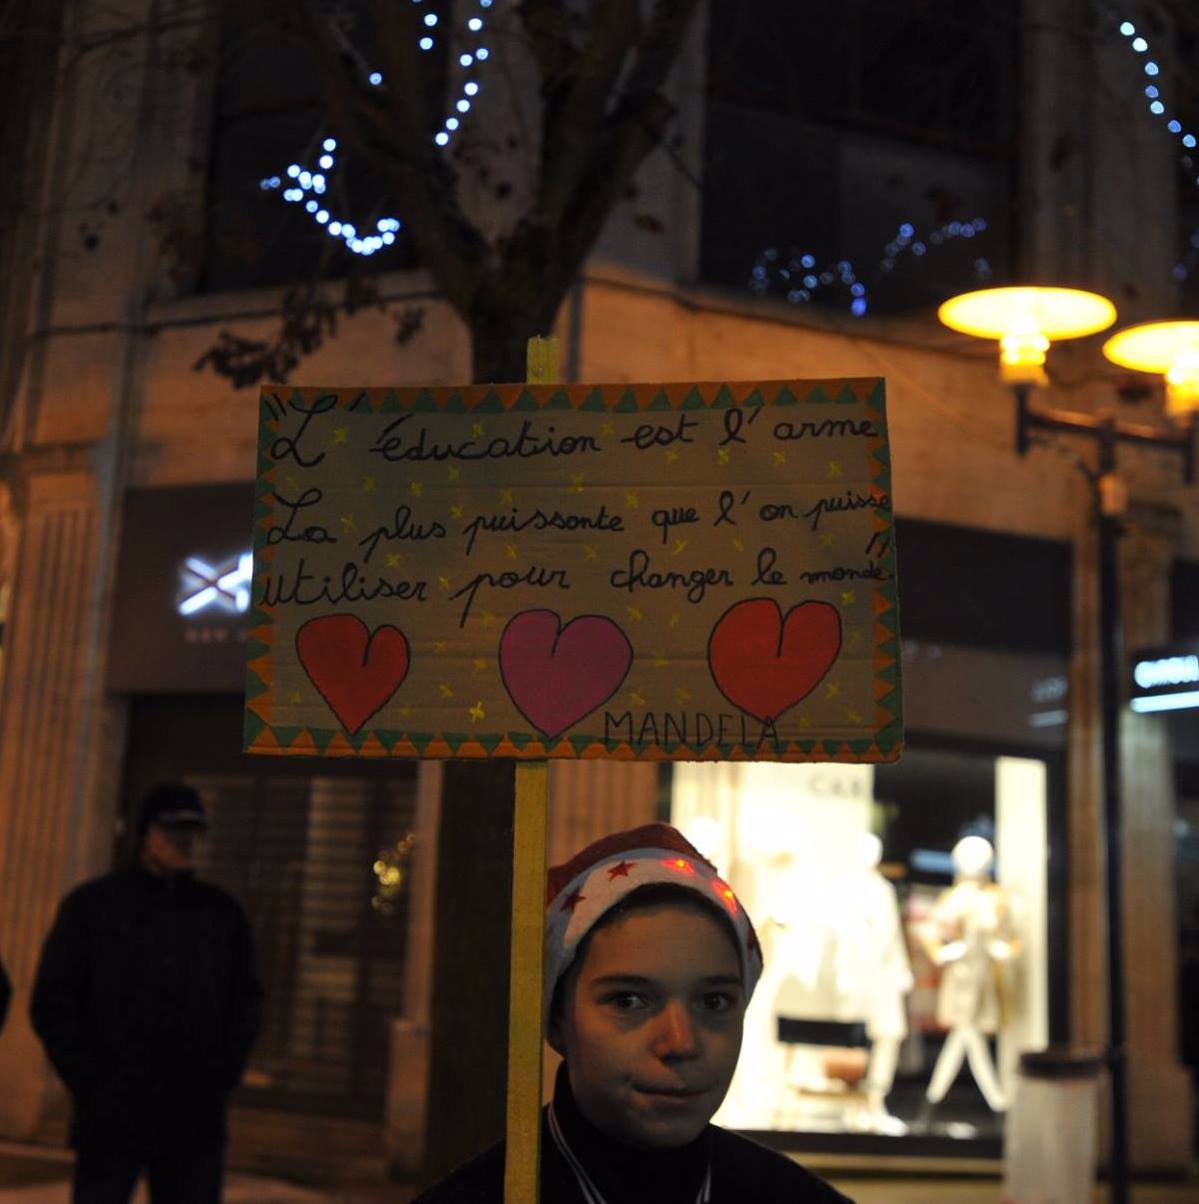 "L'éducation est l'arme
La plus puissante que l'on puisse
utiliser pour changer le monde."
MANDELA